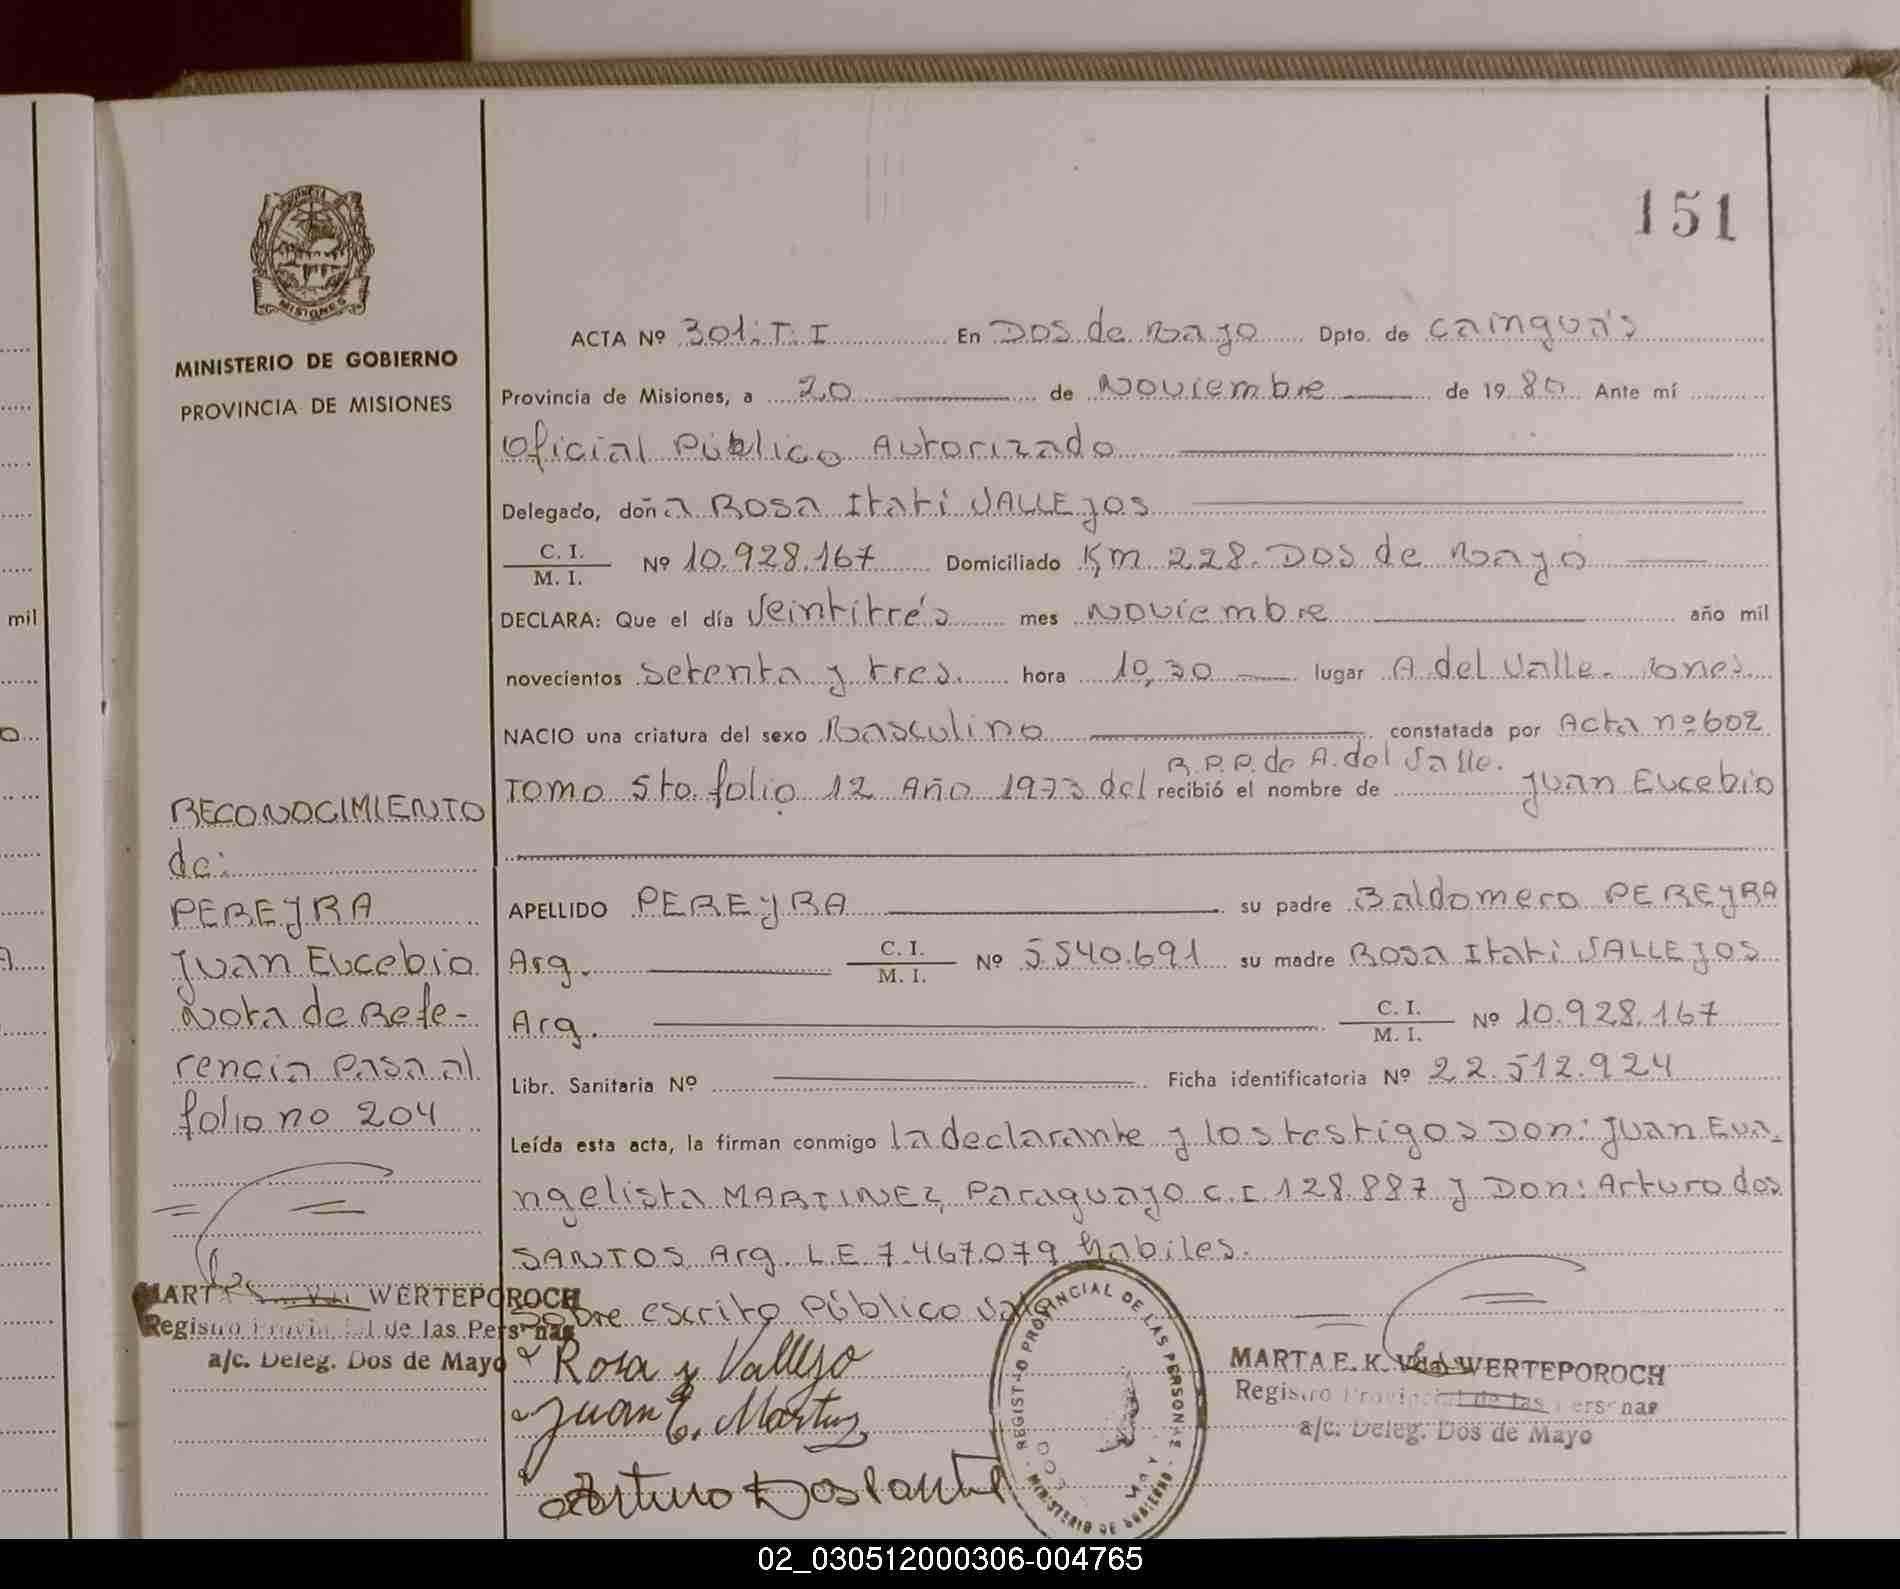 151
MISIONES
MINISTERIO DE GOBIERNO
PROVINCIA DE MISIONES
ACTA Nº 301: T: I En Dos de Mayo Dpto. de Cainguá's
Provincia de Misiones, a 20 de Noviembre de 1980 Ante mí
Oficial Público Autorizado
Delegado, doña Rosa Itatí VALLEJOS
C. I.
M. I. Nº 10.928.167 Domiciliado Km 228. Dos de Mayo
DECLARA: Que el día Veintitrés mes Noviembre año mil
novecientos setenta y tres. hora 10,30 lugar A. del Valle.
NACIO una criatura del sexo Masculino constatada por Acta nº 602
R.P.P. de A. del Valle.
Tomo 5to. folio 12 Año 1973 del recibió el nombre de Juan Eucebio
APELLIDO PEREYRA su padre Baldomero PEREYRA
Arg. C. I.
M. I. Nº 5.540.691 su madre Rosa Itatí VALLEJOS
Arg. C. I.
M. I. Nº 10.928.167
Libr. Sanitaria Nº Ficha identificatoria Nº 22.512.924
Leída esta acta, la firman conmigo la declarante y los testigos Don: Juan Eva-
ngelista MARTINEZ, Paraguayo C.I 128.887 y Don: Arturo dos
SANTOS, Arg. L.E. 7.467.079 habiles.
Sobre escrito Público Vale
Rosa y Vallejo
Juan E. Martinz
Arturo Dos
RECONOCIMIENTO
de:
PEREYRA
Juan Eucebio
Nota de Refe-
rencia Pasa al
folio no 204
MARTA WERTEPOROCH
Registro Provincial de las Personas
a/c. Deleg. Dos de Mayo
REGISTRO PROVINCIAL DE LAS PERSONAS
MINISTERIO DE GOBIERNO
MARTA E. K. Vda. WERTEPOROCH
Registro Provincial de las Personas
a/c. Deleg. Dos de Mayo
mil
02_030512000306-004765